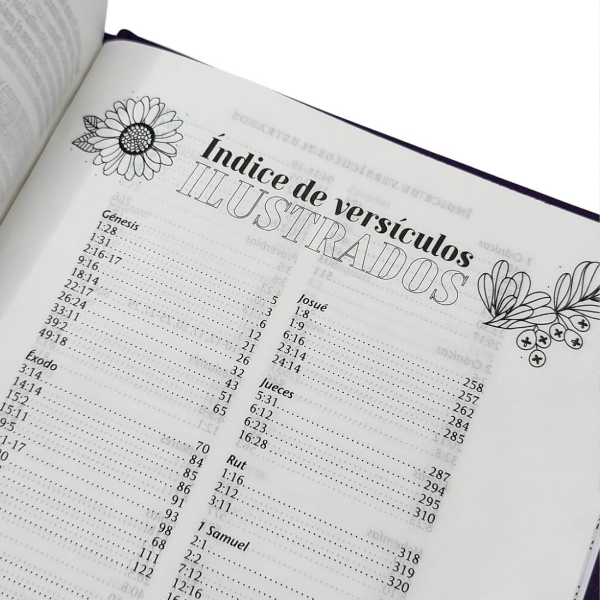 Índice de versículos
ILUSTRADOS
Génesis
1:28 5
1:31 3
2:16-17 6
9:16 12
18:14 21
22:17 26
26:24 32
33:11 43
39:2 51
49:18 65
Éxodo
3:14 70
14:14 84
15:2 85
15:11 86
9:5 91
1-17 93
98
68
111
122
Josué
1:8 258
1:9 257
6:16 262
23:14 284
24:14 285
Jueces
5:31 287
6:12 294
6:23 295
16:28 310
Rut
1:16 318
2:12 319
3:11 320
1 Samuel
2:1
2:2
7:12
12:16